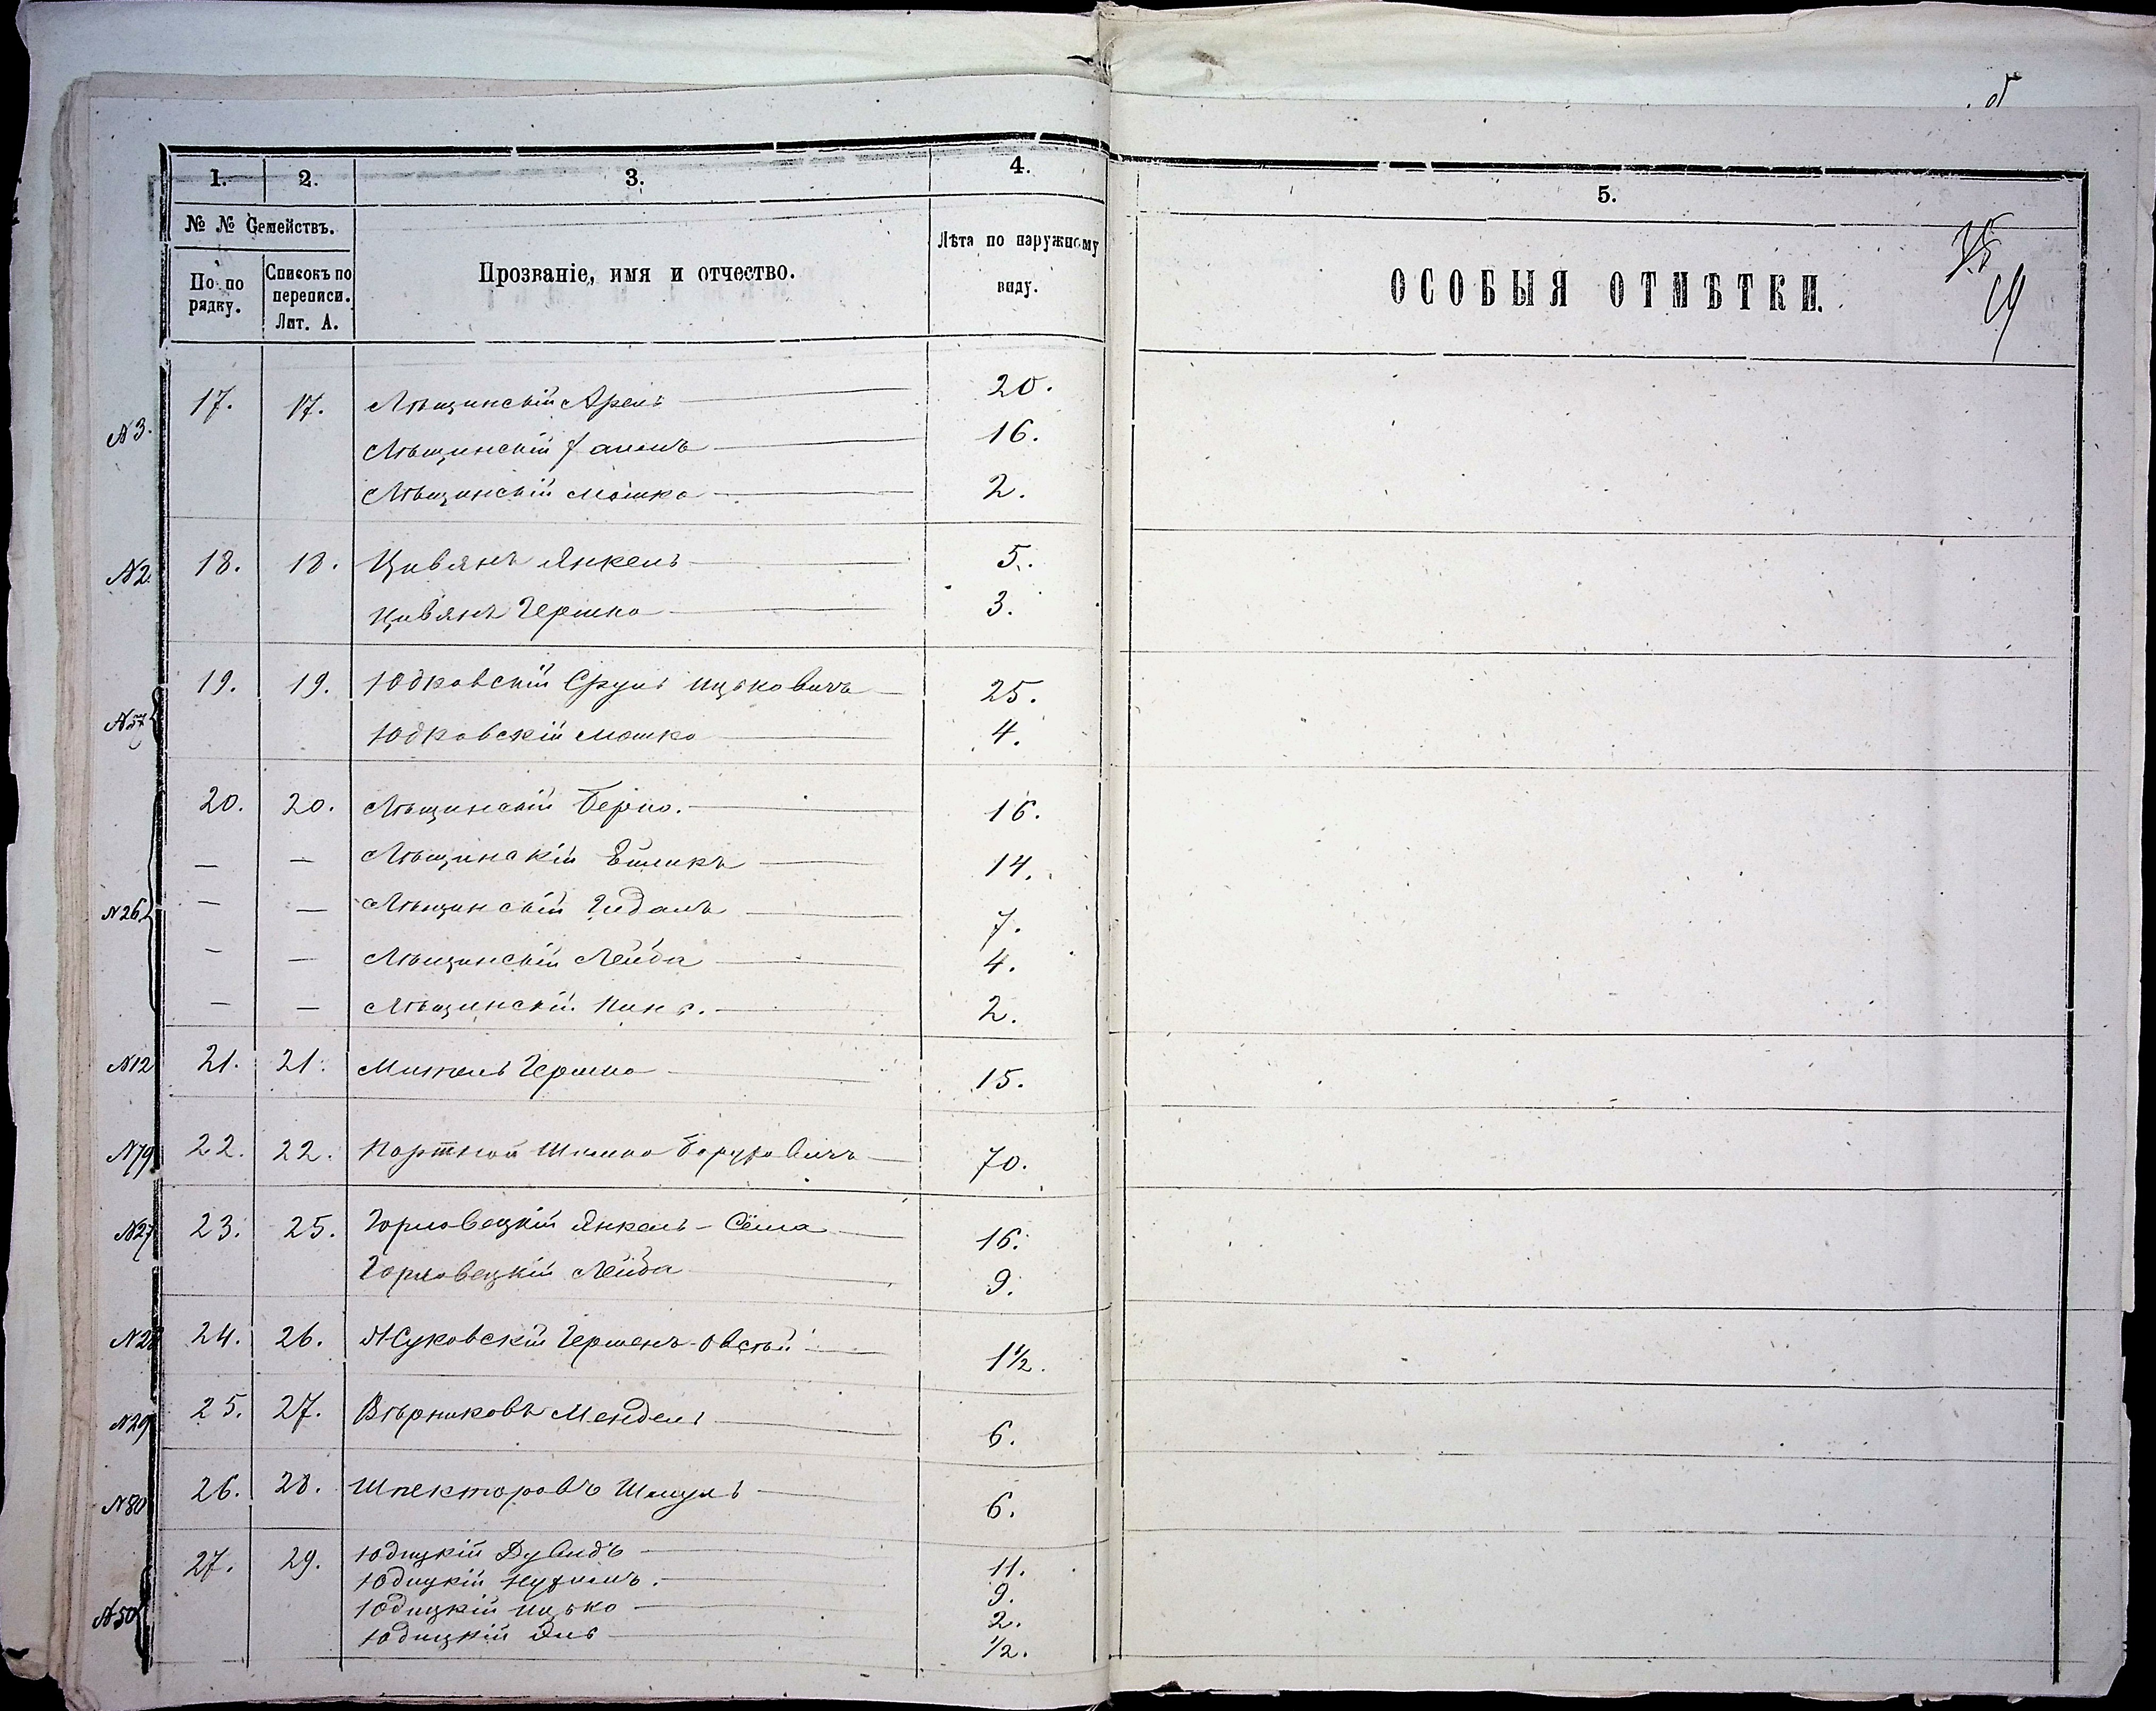 1. 2. 3. 4.
№ № Семействъ.
По порядку. Списокъ по переписи. Лит. А.
Прозваніе, имя и отчество.
Лѣта по наружному виду.
5.
ОСОБЫЯ ОТМѢТКИ.
№3. 17. 17. Лѣщинскій Арель 20.
Лѣщинскій Хаимъ 16.
Лѣщинскій Мошко 2.
№2. 18. 18. Цивянъ Янкель 5.
Цивянъ Гершко 3.
19. 19. Юдковскій Сруль Ицковичъ 25.
Юдковскій Мошко 4.
20. 20. Лѣщинскій Берко. 16.
№26 — — Лѣщинскій 14.
— — Лѣщинскій Гидаль 7.
— — Лѣщинскій Лейба 4.
— — Лѣщинскій 2.
№12 21. 21. Гершко 15.
№79 22. 22. Портной Шлёма Боруховичъ 70.
№27 23. 25. Горловецкій Янкель-Сёма 16.
Горловецкій Лейба 9.
№28 24. 26. Жуковскій Гершенъ-Овсѣй 1 1/2.
№29 25. 27. Вѣрниковъ Мендель 6.
№80 26. 28. Шпекторовъ Шмуль 6.
№50 27. 29. Юдицкій Дувидъ 11.
Юдицкій Нухимъ. 9.
Юдицкій Ицько 2.
Юдицкій 1/2.